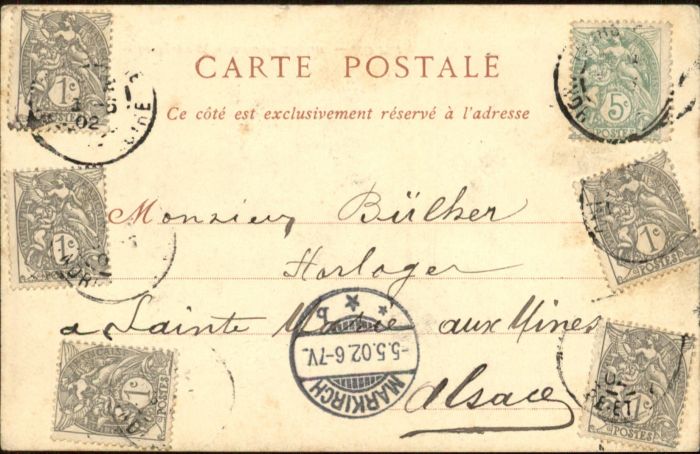 CARTE POSTALE
Ce côté est exclusivement réservé à l'adresse
Monsieur Bülher
Horloger
a Sainte Marie aux Mines
Alsace
MARKIRCH
-5.5.02.6-7V.
b
1c
POSTES
02
1c
1c
5c
POSTES
1c
POSTES
1c
POSTES